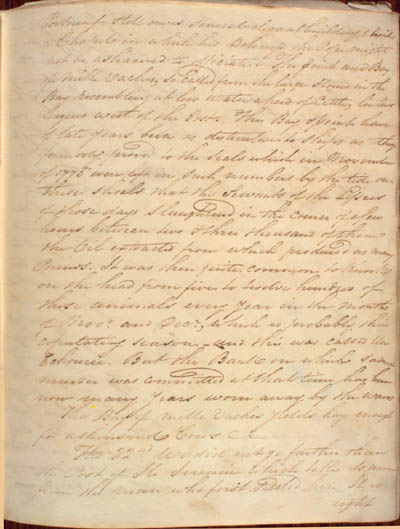 Portneuf still owns several elegant buildings; beside
a Chapel in which his Holiness the Pope might
not be ashamed to officiate. The Point and Bay
de Mille Vaches, so called from the large Stones in the
Bay resembling at low water a herd of Cattle, lie two
leagues west of the Post. This Bay & Point have
of late years been as destructive to Ships as they
formerly proved to the Seals which in November
of 1775 were left in such numbers by the tide on
these Shoals that the Servants of the Lessees
of those days Slaughtered in the Course of a few
hours between two & three thousand of them
the Oil extracted from which produced as many
Pounds. It was then quite common to knock
on the head from five to twelve hundred of
those animals every year in the months
of Novr. and Decr., which is probably their
copulating season, and this was called
Echourie. But the Bank on which
murder was committed at that time has been
now many years worn away by the waves
The Bay of mille Vaches yields hay enough
for a thousand Cows
The 22nd we did not go farther than
the Post of which takes its name
from the man who first there. It is
right